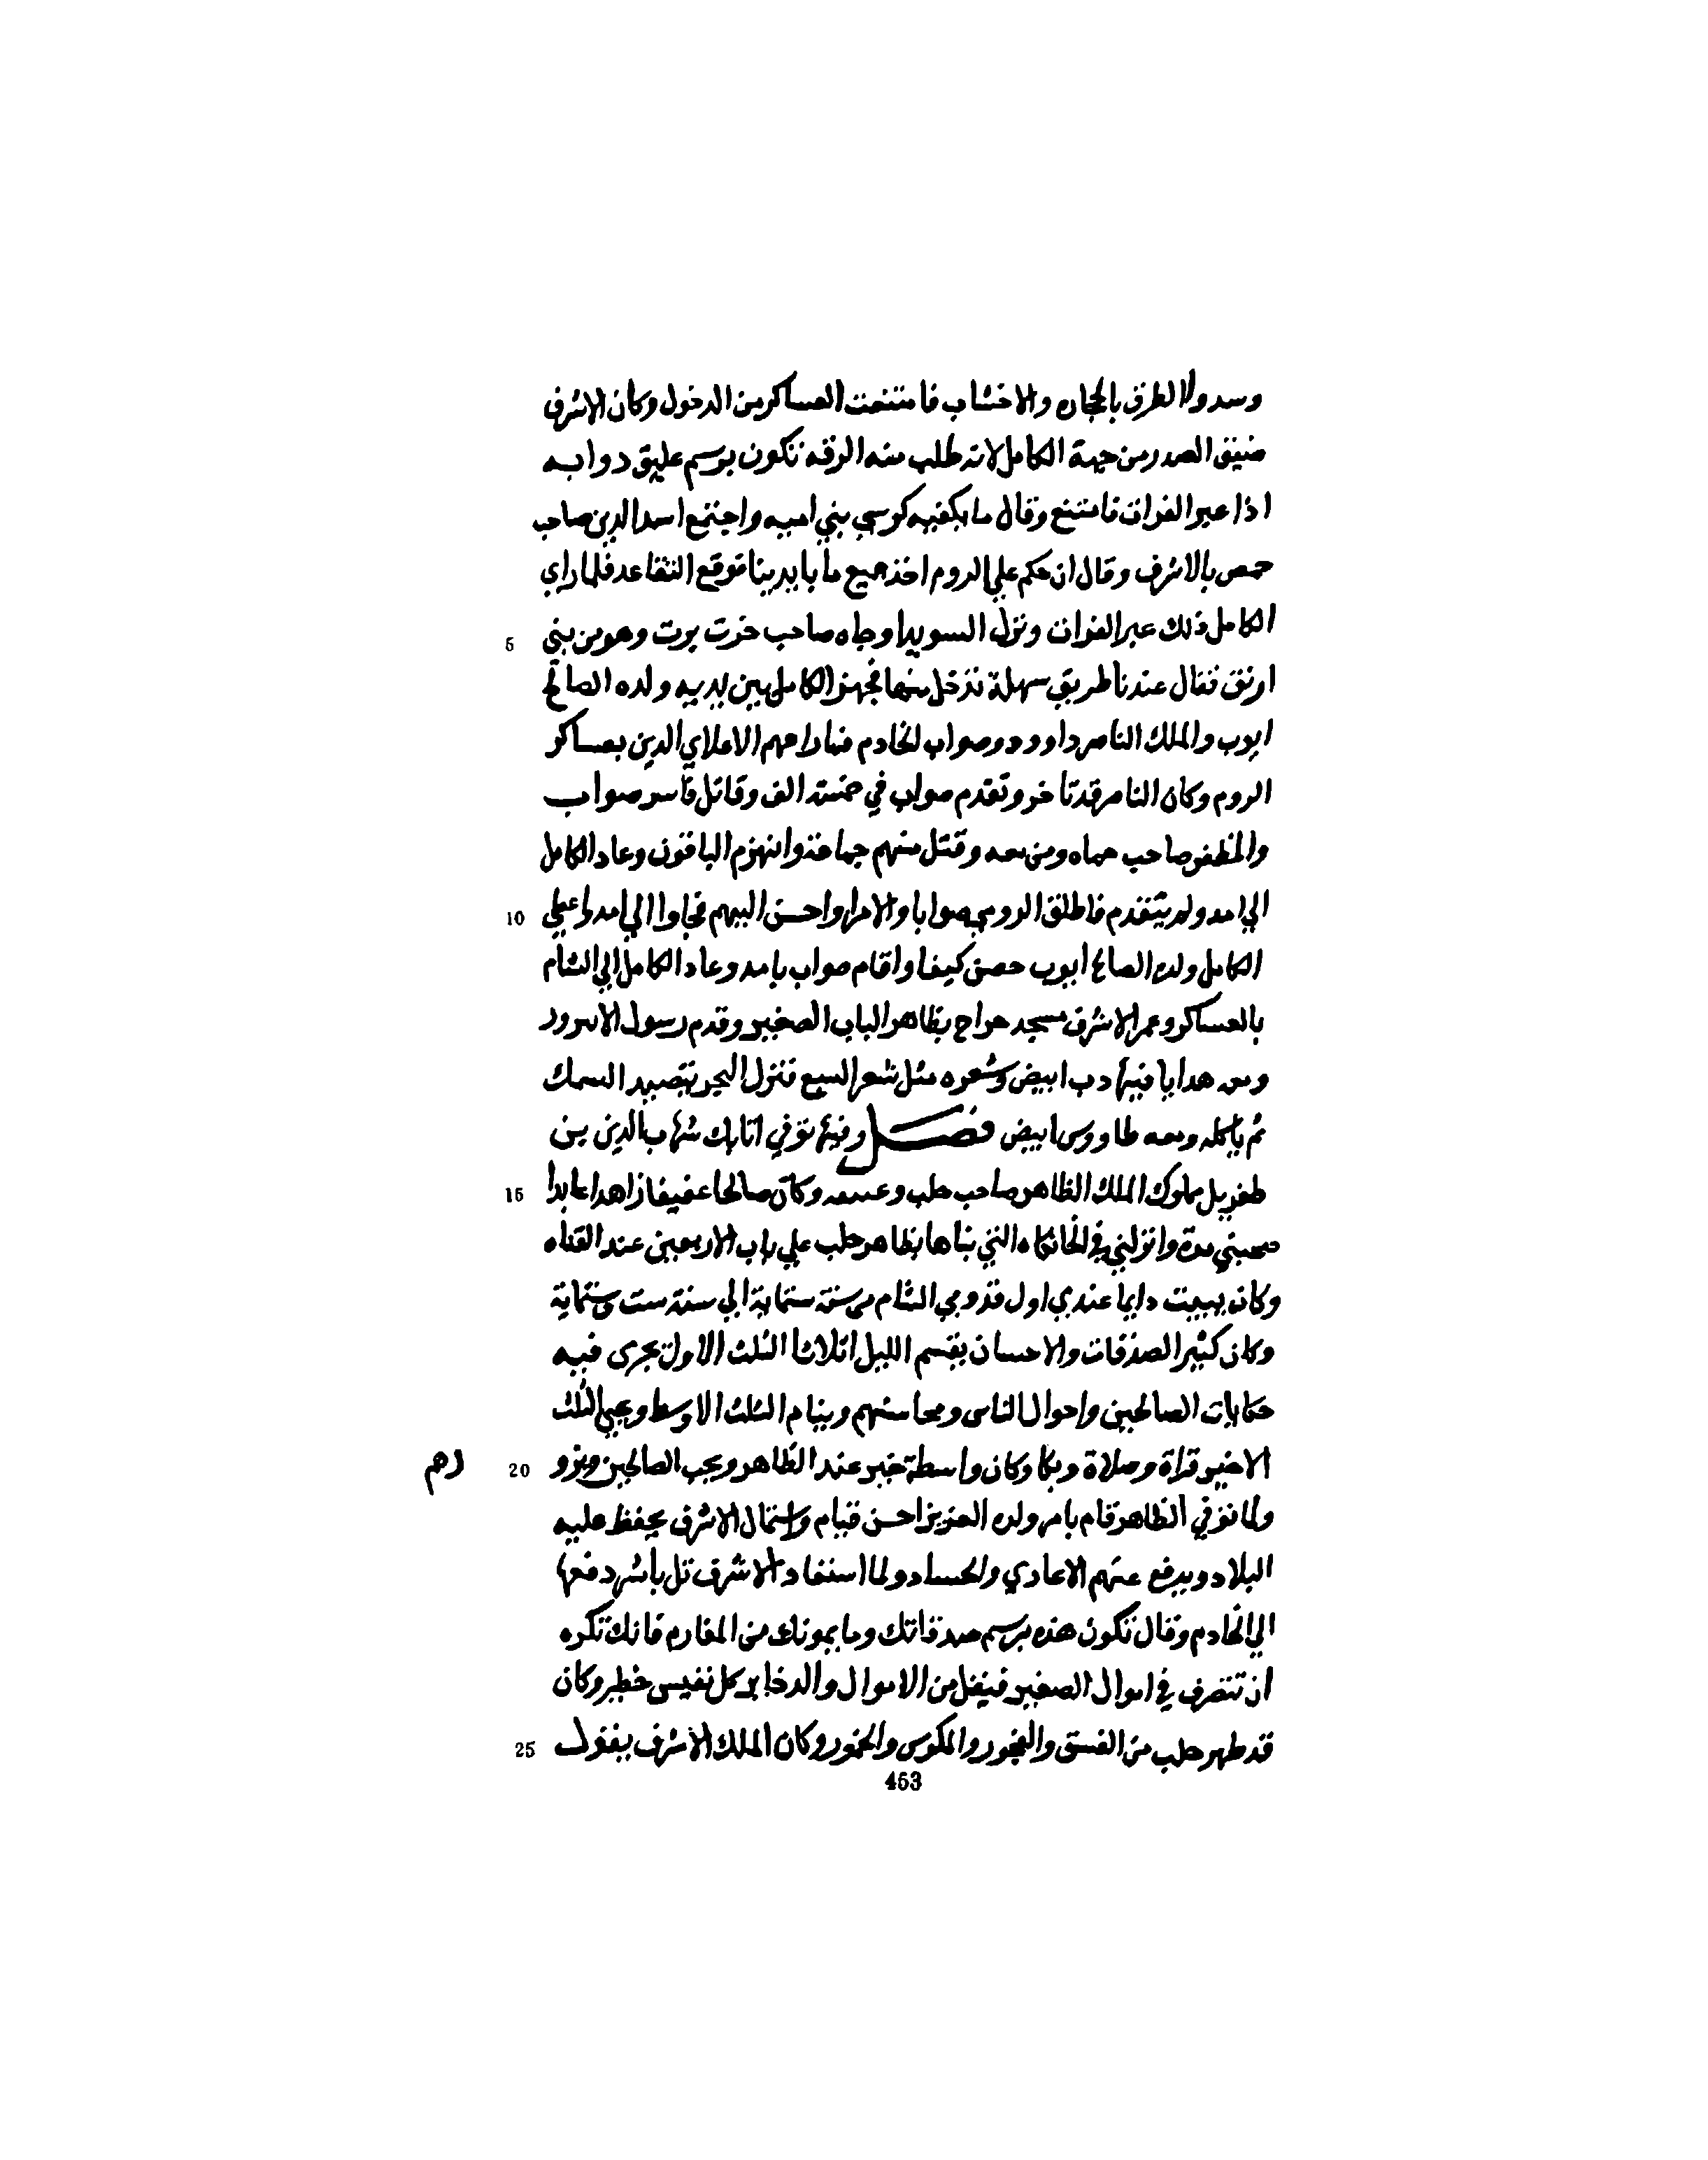 وسدوا الطرق بالحجاره والاخشاب فامتنعت العساكر من الدخول وكان الاشرف
ضيق الصدر من جهة الكامل لانه طلب منه الرقه تكون برسم عليق دوابه
اذا عبر الفرات فامتنع وقال ما يكفيه كرسي بني اميه واجتمع اسد الدين صاحب
حمص بالاشرف وقال ان حكم علي الروم اخذ جميع ما بايدينا فوقع التقاعد فلما راي
الكامل ذلك عبر الفرات ونزل السويدا وجاه صاحب خرت برت وهو من بني 5
ارتق فقال عندنا طريق سهلة تدخل منها فجهز الكامل بين يديه ولده الصالح
ايوب والملك الناصر داوود وصواب الخادم فما راعهم الا علاي الدين بعساكر
الروم وكان الناصر قد تاخر وتقدم صواب في خمسة الف وقاتل فاسر صواب
والمظفر صاحب حماه ومن معه وقتل منهم جماعة وانهزم الباقون وعاد الكامل
الي امد ولم يتقدم فاطلق الرومي صوابا والامرا واحسن اليهم فجاوا الي امد واعطي 10
الكامل ولده الصالح ايوب حصن كيفا واقام صواب بامد وعاد الكامل الي الشام
بالعساكر وعمر الاشرف مسجد جراح بظاهر الباب الصغير وقدم رسول الانبرور
ومعه هدايا فيها دب ابيض وشعره مثل شعر السبع تنزل البحر يتصيد السمك
ثم ياكله ومعه طاووس ابيض فصل وفيها توفي اتابك شهاب الدين بن
طغريل مملوك الملك الظاهر صاحب حلب وعسه وكان صالحا عفيفا زاهدا عابدا 15
صحبني مدة وانزلني في الخانكاه التي بناها بظاهر حلب علي باب الاربعين عند القناه
وكان يبيت دايما عندي اول قدومي الشام من سنة ستماية الي سنة ست وستماية
وكان كثير الصدقات والاحسان يقسم الليل اثلاثا الثلث الاول يجري فيه
حكايات الصالحين واحوال الناس ومحاسنهم وينام الثلث الاوسط ويحيي الثلث
الاخير قراة وصلاة وبكا وكان واسطة خير عند الظاهر ويحب الصالحين ويزو 20 رهم
ولما توفي الظاهر قام بامر ولده العزيز احسن قيام واستمال الاشرف يحفظ عليه
البلاد ويدفع عنهم الاعادي والحساد ولما استفاد الاشرف تل باشر دفعها
الي الخادم وقال تكون هذه برسم صدقاتك وما يمونك من المغارم فانك تكره
ان تتصرف في اموال الصغير فينفل من الاموال والدخاير كل نفيس خطير وكان
قد طهر حلب من الفسق والفجور والمكوس والخمور وكان الملك الاشرف يقول 25
453